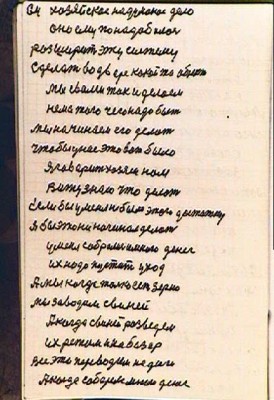 Он хозяйское надуманое дело
Оно ему понадобилося
розширят эту систему
Сделат во дворе какой то обют
Мы свами так и делоем
нема того чего надо быт
мы начинаем его делот
чтобы унас это вот было
Я говорит хозяен нам
Вижу знаю что делат
Если бы умелибы этого достатку
Я бы этого не начинал делот
умея собралиб много денег
их надо пустит уход
А мы когда только ест зерно
мы заводим свиней
А когда свиней розведем
их режим и на базар
все это переводим на деньги
А когда соберем много денег